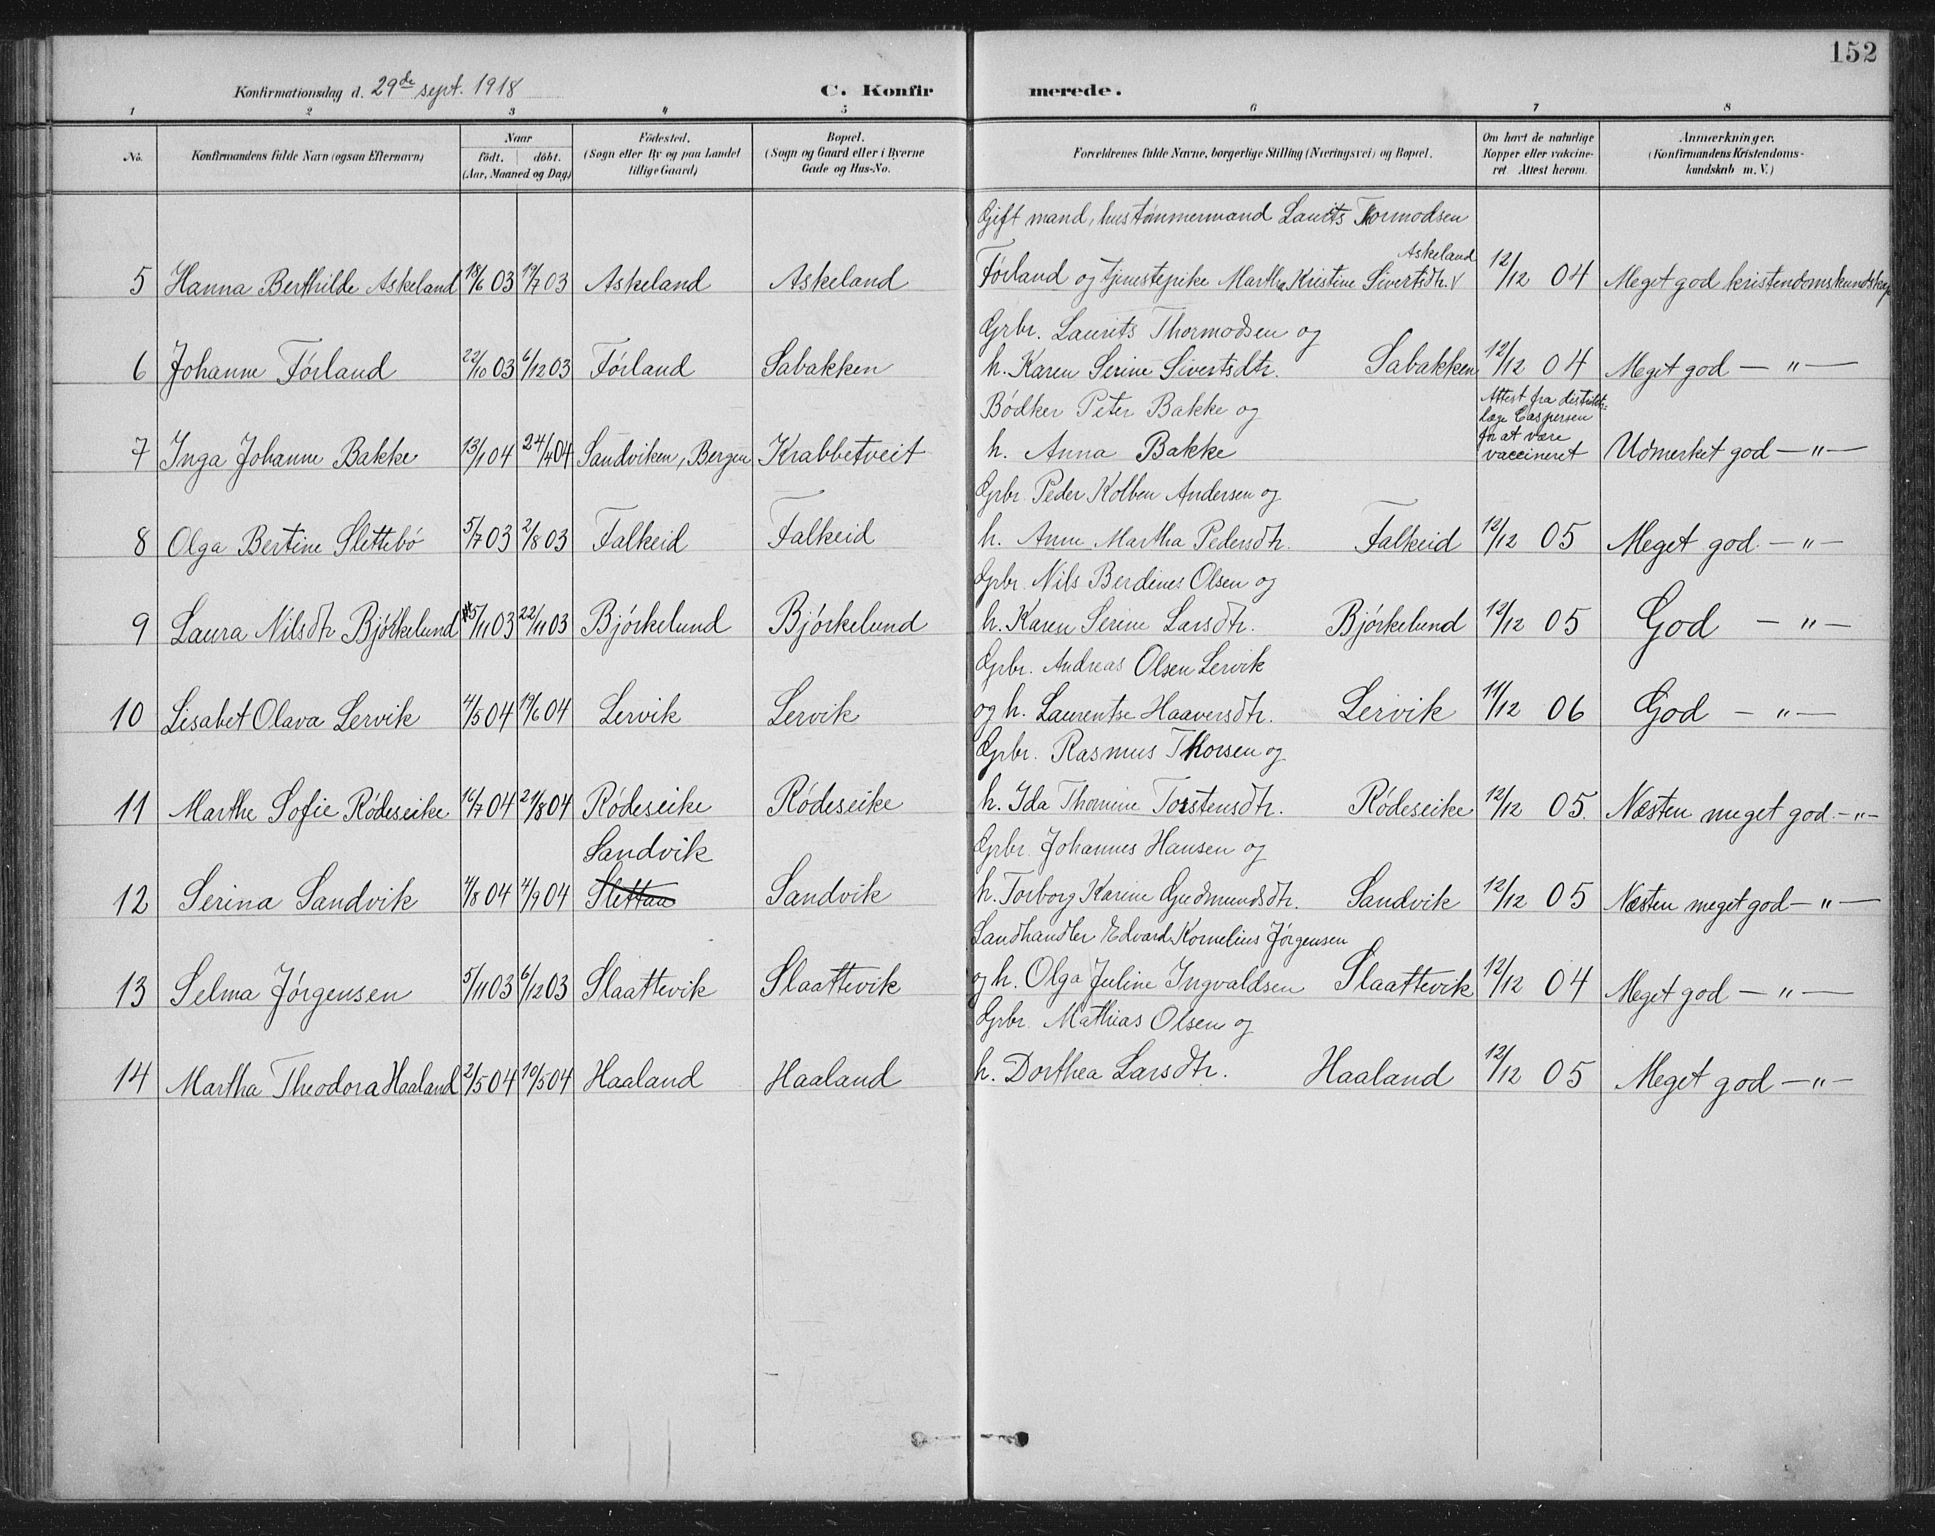 152
Konfirmationsdag d. 29de sept. 1918 C. Konfirmerede.
1 2 3 4 5 6 7 8
No. Konfirmandens fulde Navn (ogsaa Efternavn) Naar födt. döbt. (Aar, Maaned og Dag) Födested. (Sogn eller By og paa Landet tillige Gaard) Bopæl. (Sogn og Gaard eller i Byerne Gade og Hus-No. Forældrenes fulde Navne, borgerlige Stilling (Næringsvei) og Bopæl. Om havt de naturlige Kopper eller vakcineret. Attest herom. Anmærkninger. (Konfirmandens Kristendomskundskab m. V.)
Gift mand, hustømmermand Laurits Thormodsen
Askeland
5 Hanna Berthilde Askeland 18/6 03 19/7 03 Askeland Askeland Førland og tjenestepike Martha Kristine Sivertsdtr. 12/12 04 Meget god kristendomskundskap
Grbr. Laurits Thormodsen og
6 Johanne Førland 22/10 03 6/12 03 Førland Sabakken h. Karen Serine Sivertsdtr. Sabakken 12/12 04 Meget god — " —
Bødker Peter Bakke og Attest fra distriktslæge Caspersen for at være
7 Inga Johanne Bakke 13/1 04 24/4 04 Sandviken, Bergen Krabbetveit h. Anna Bakke vaccineret Udmerket god — " —
Grbr. Peder Kolben Andersen og
8 Olga Bertine Slettebø 5/7 03 2/8 03 Falkeid Falkeid h. Anne Martha Pedersdtr. Falkeid 12/12 05 Meget god. — " —
Grbr. Nils Berdines Olsen og
9 Laura Nilsdtr Bjørkelund 5/11 03 22/11 03 Bjørkelund Bjørkelund h. Karen Serine Larsdtr. Bjørkelund 12/12 05 God — " —
Grbr. Andreas Olsen Lervik
10 Lisabet Olava Lervik 4/5 04 19/6 04 Lervik Lervik og h. Laurentse Haaversdtr. Lervik 11/12 06 God — " —
Grbr. Rasmus Thorsen og
11 Marthe Sofie Rødeseike 16/7 04 21/8 04 Rødeseike Rødeseike h. Ida Thomine Torstensdtr. Rødeseike 12/12 05. Næsten meget god — " —
Sandvik Grbr. Johannes Hansen og
12 Serina Sandvik 4/8 04 4/9 04 Slettaa Sandvik h. Torborg Karine Gudmundsdtr. Sandvik 12/12 05 Næsten meget god — " —
Landhandler Edvard Kornelius Jørgensen
13 Selma Jørgensen 5/11 03 6/12 03 Slaattevik Slaattevik og h. Olga Juline Ingvaldsen Slaattevik 12/12 04 Meget god — " —
Grbr. Mathias Olsen og
14 Martha Theodora Haaland 2/5 04 10/5 04 Haaland Haaland h. Dorthea Larsdtr. Haaland 12/12 05 Meget god — " —